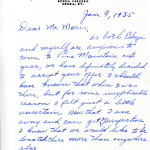 BEREA COLLEGE
BEREA, KY.
Jan 9, 1935
Dear Mr. Morris,
as both Edge
and myself are anxious to
come to Pine Mountain next
year, we have definitely decided
to accept your offer. I should
have known that when I was
there, but for some inexplicable
reason I felt just a little
uncertain. Now that I am
away and can get perspective
I know that we would like to be
there more than anywhere
else